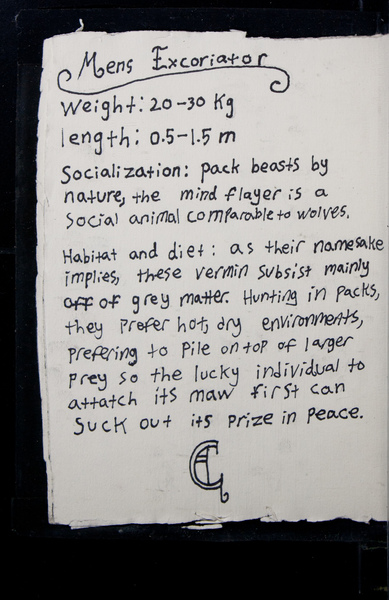 Mens Excoriator
Weight: 20-30 Kg
length: 0.5-1.5 m
Socialization: pack beasts by
nature, the mind flayer is a
Social animal comparable to wolves.
Habitat and diet: as their namesake
implies, these vermin subsist mainly
off of grey matter. Hunting in packs,
they Prefer hot, dry environments,
Prefering to Pile on top of larger
Prey so the lucky individual to
attatch its maw first can
Suck out its Prize in Peace.